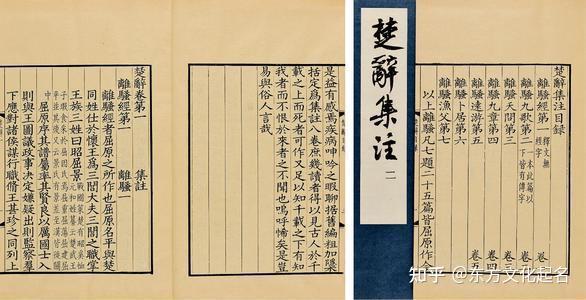 楚辭集注
一
楚辭集注目錄
離騷經第一 釋文無經字 卷
離騷九歌第二 一本此篇以下皆有傳字 卷
離騷天問第三 卷
離騷九章第四 卷四
離騷遠游第五 卷五
離騷卜居第六
離騷漁父第七
以上離騷凡七題二十五篇皆屈原作
是益有感焉疾病呻吟之暇聊据舊編粗加櫽
括定爲集註八卷庶幾讀者得以見古人於千
載之上而死者可作又足以知千載之下有知
我者而不恨於來者之不聞也嗚呼悕矣是豈
易與俗人言哉
楚辭卷第一 集註
離騷經第一 離騷一
離騷經者屈原之所作也屈原名平與楚
同姓仕於懷王爲三閭大夫三閭之職掌
王族三姓曰昭屈景
屈原序其譜屬率其賢良以厲國士入
則與王圖議政事決定嫌疑出則監察羣
下應對諸侯謀行職脩王甚珍之同列上
知乎 @东方文化起名